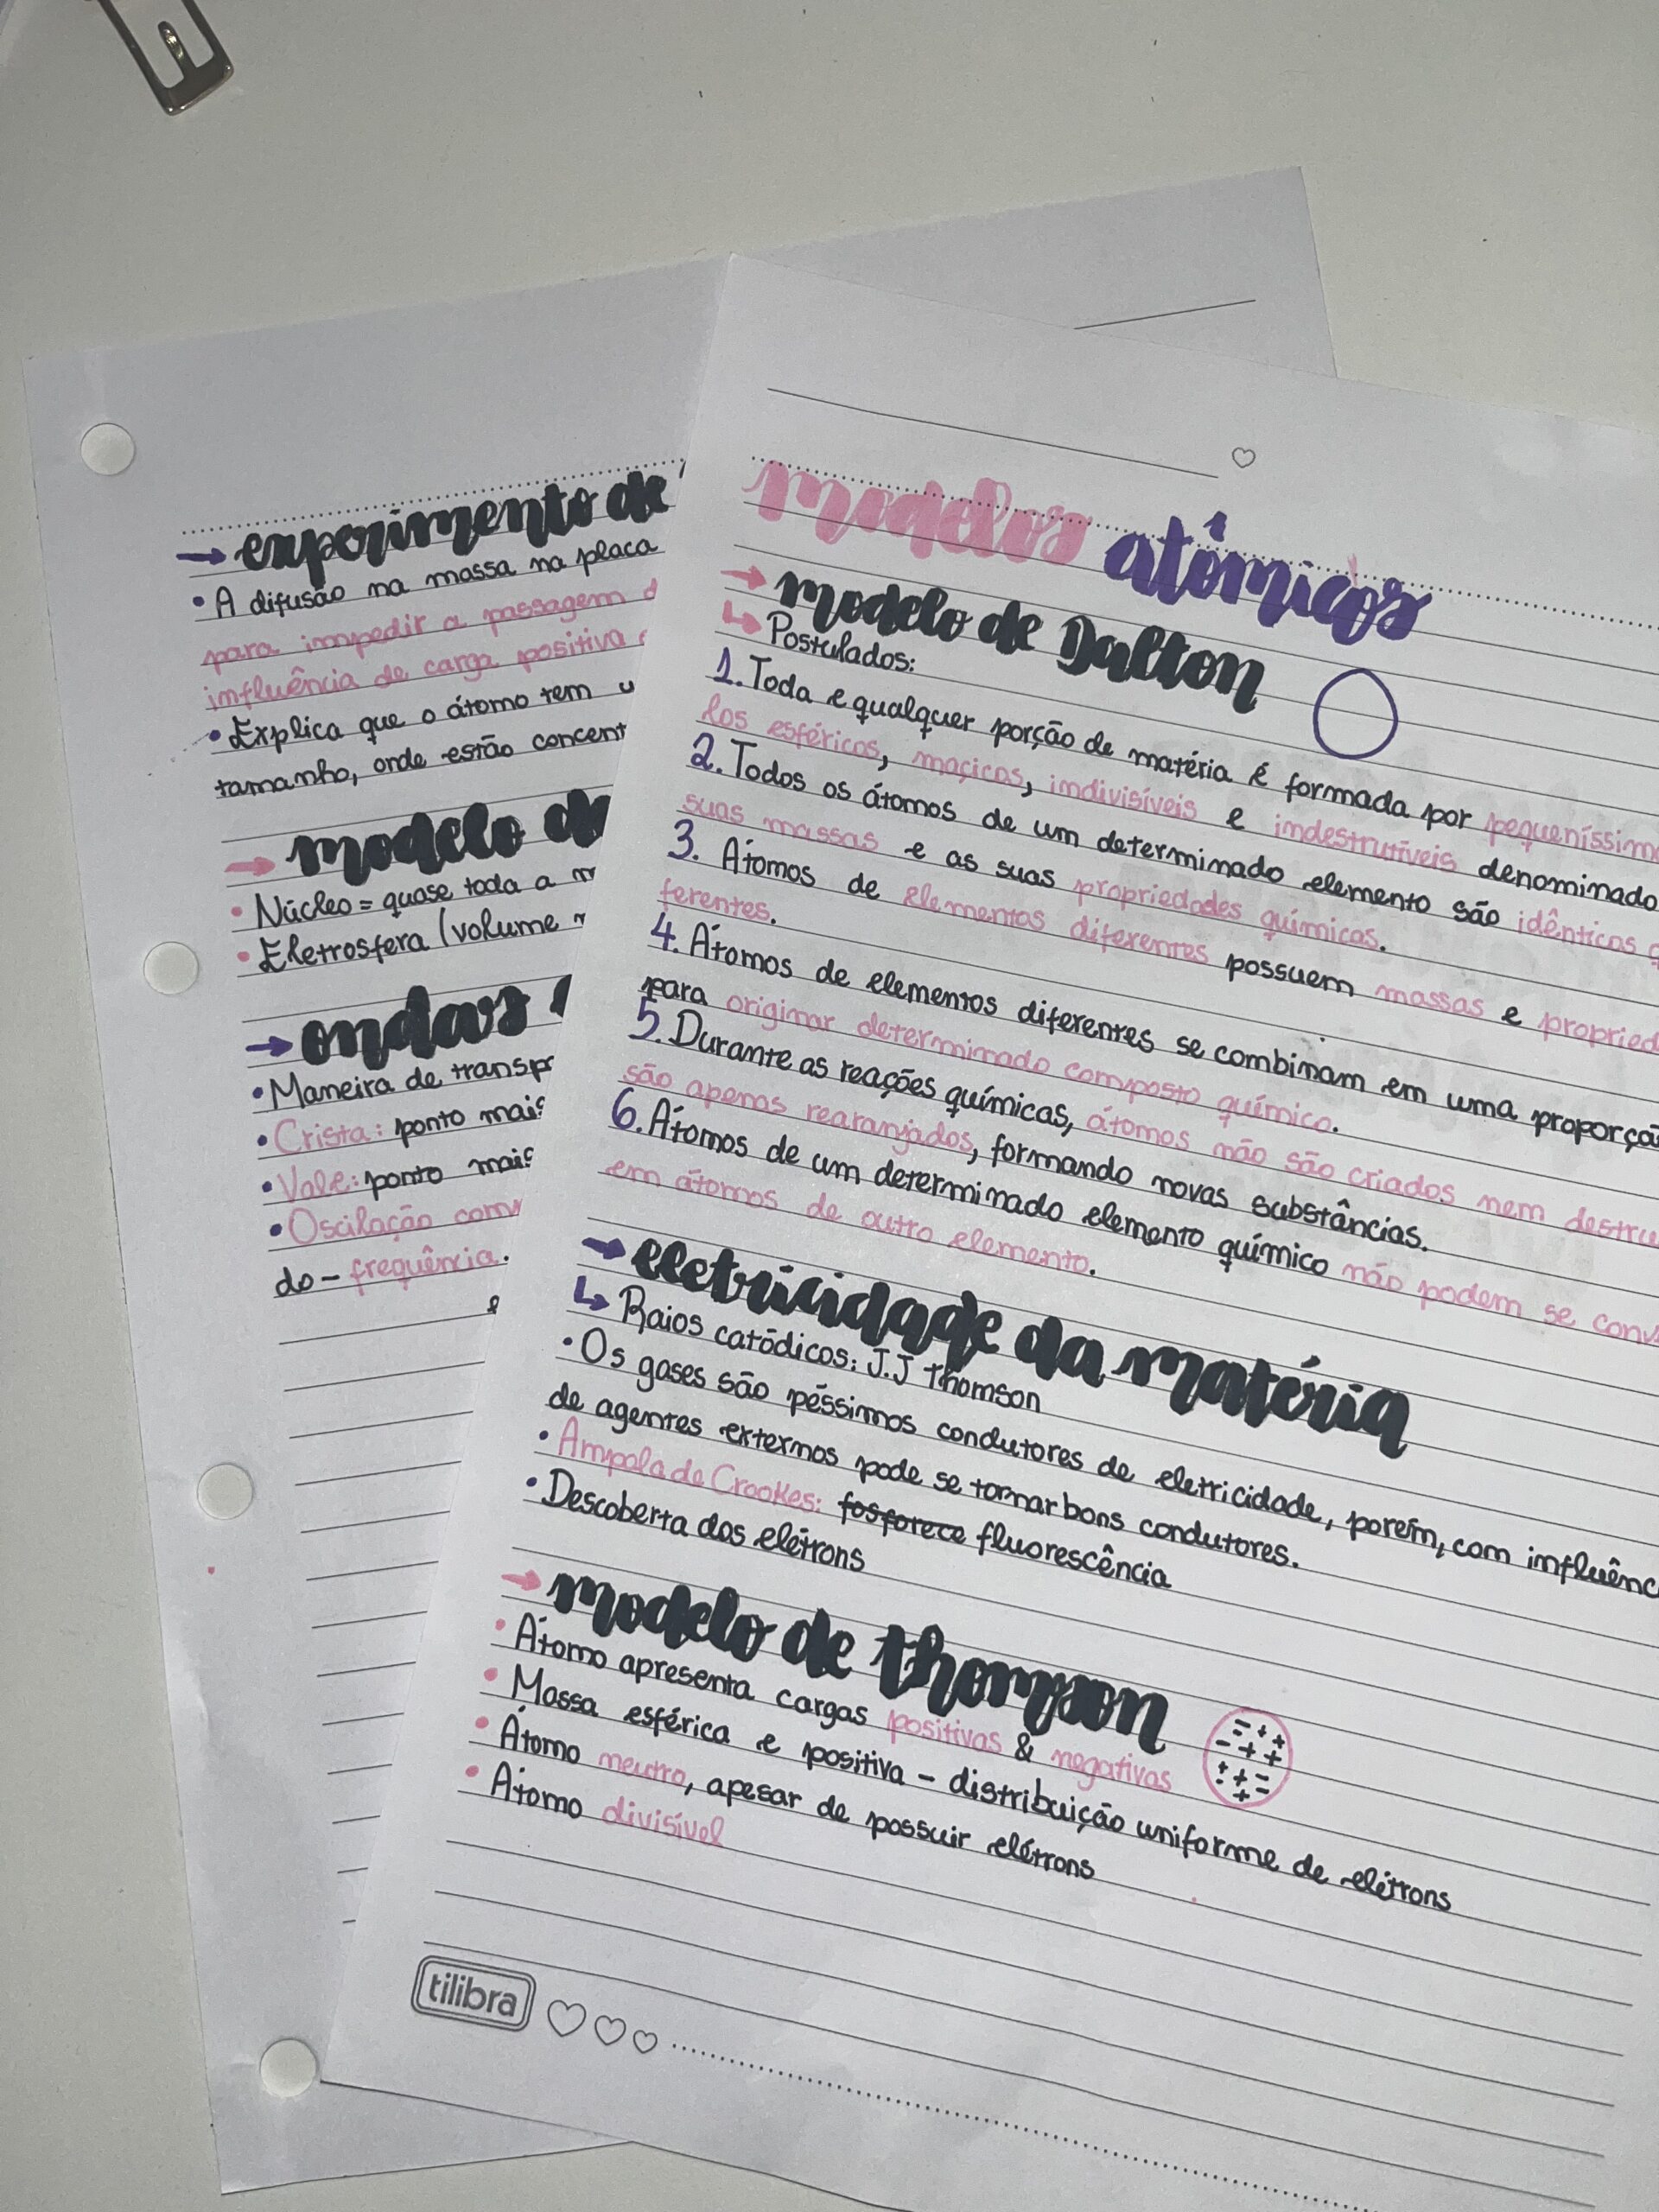 → experimento de
• A difusão na massa na placa
para impedir a passagem
influência de carga positiva
• Explica que o átomo tem
tamanho, onde estão concent
→ modelo de
• Núcleo = quase toda a
• Eletrosfera (volume
→ ondas
• Maneira de transp
• Crista: ponto mais
• Vale: ponto mais
• Oscilação com
do - frequência.
modelos atômicos
→ modelo de Dalton
↳ Postulados:
1. Toda e qualquer porção de matéria é formada por pequeníssim
los esféricos, maciços, indivisíveis e indestrutíveis denominado
2. Todos os átomos de um determinado elemento são idênticos
suas massas e as suas propriedades químicas.
3. Átomos de elementos diferentes possuem massas e propried
ferentes.
4. Átomos de elementos diferentes se combinam em uma proporçã
para originar determinado composto químico.
5. Durante as reações químicas, átomos não são criados nem destru
são apenas rearranjados, formando novas substâncias.
6. Átomos de um determinado elemento químico não podem se conv
em átomos de outro elemento.
→ eletricidade da matéria
↳ Raios catódicos: J.J Thomson
• Os gases são péssimos condutores de eletricidade, porém, com influênc
de agentes externos pode se tornar bons condutores.
• Ampola de Crookes: fosforece fluorescência
• Descoberta dos elétrons
→ modelo de thomson
• Átomo apresenta cargas positivas & negativas
• Massa esférica e positiva - distribuição uniforme de elétrons
• Átomo neutro, apesar de possuir elétrons
• Átomo divisível
tilibra